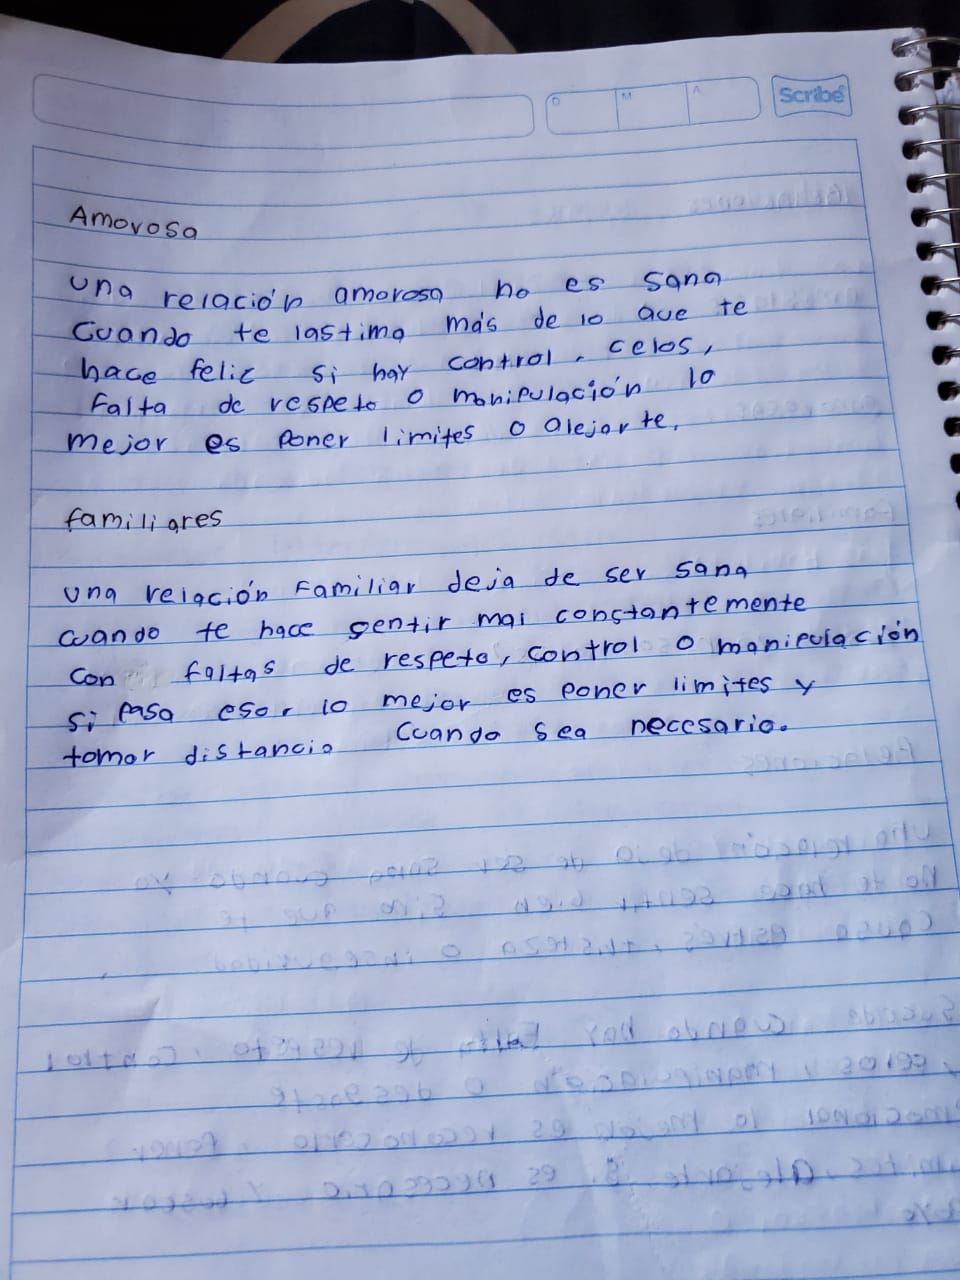 Scribe
D M A
Amorosa
una relación amorosa no es sana
Cuando te lastima más de lo que te
hace feliz si hay control, celos,
Falta de respeto o manipulación lo
mejor es poner limites o alejarte.
familiares
una relación Familiar deja de ser sana
cuando te hace sentir mal constantemente
con faltas de respeto, control o manipulación
si pasa eso, lo mejor es poner limites y
tomar distancia Cuando sea necesario.